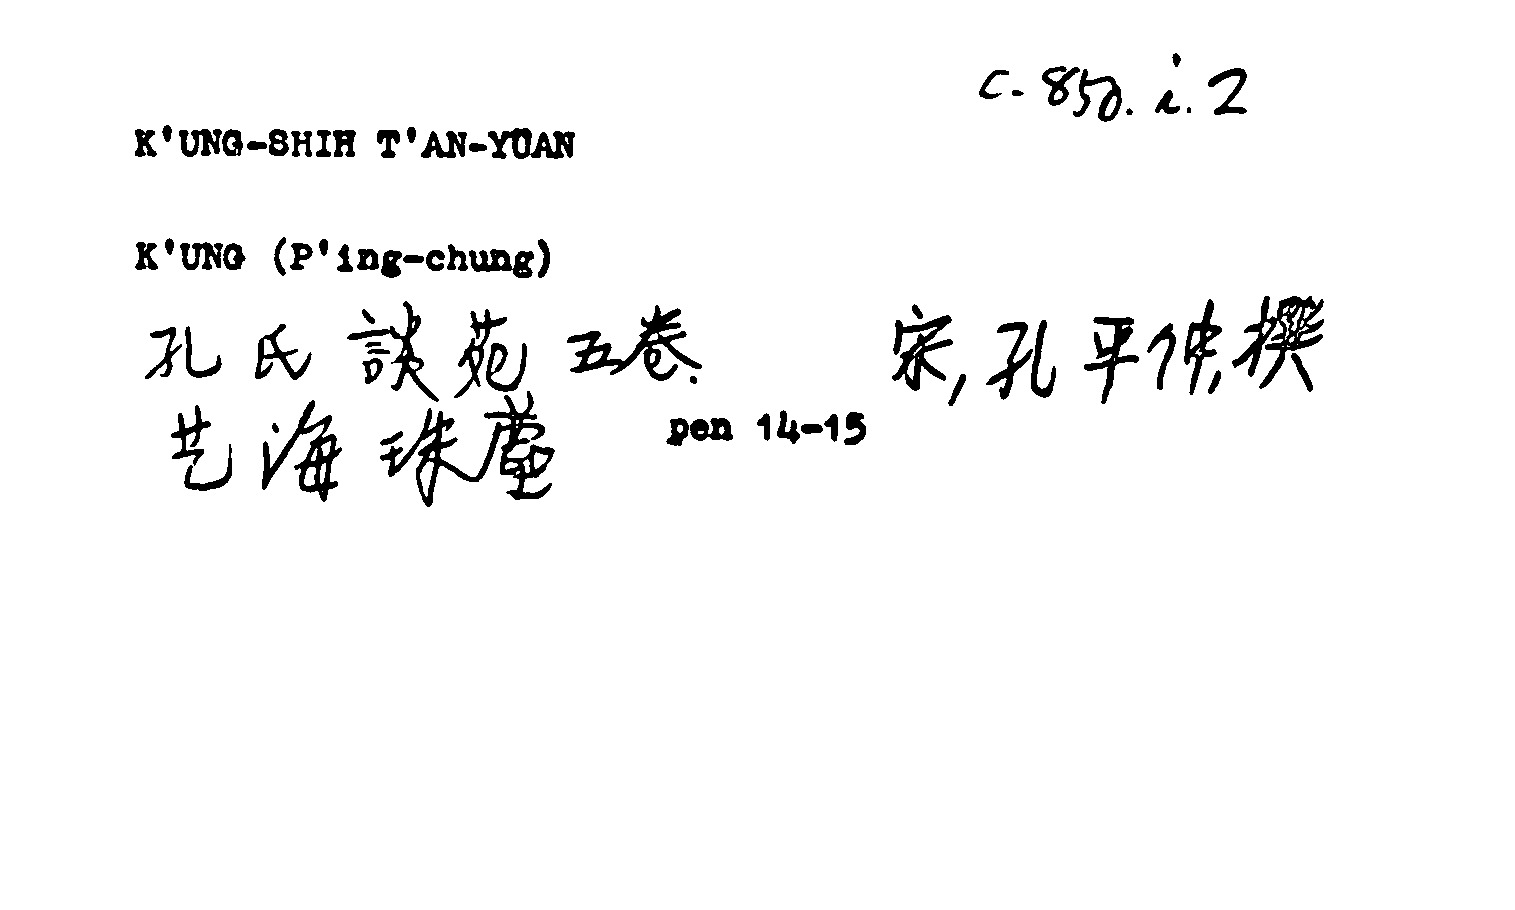 C. 852. i. 2
K'UNG-SHIH T'AN-YÜAN
K'UNG (P'ing-chung)
孔氏談苑五卷. 宋,孔平仲,撰
艺海珠塵 pen 14-15